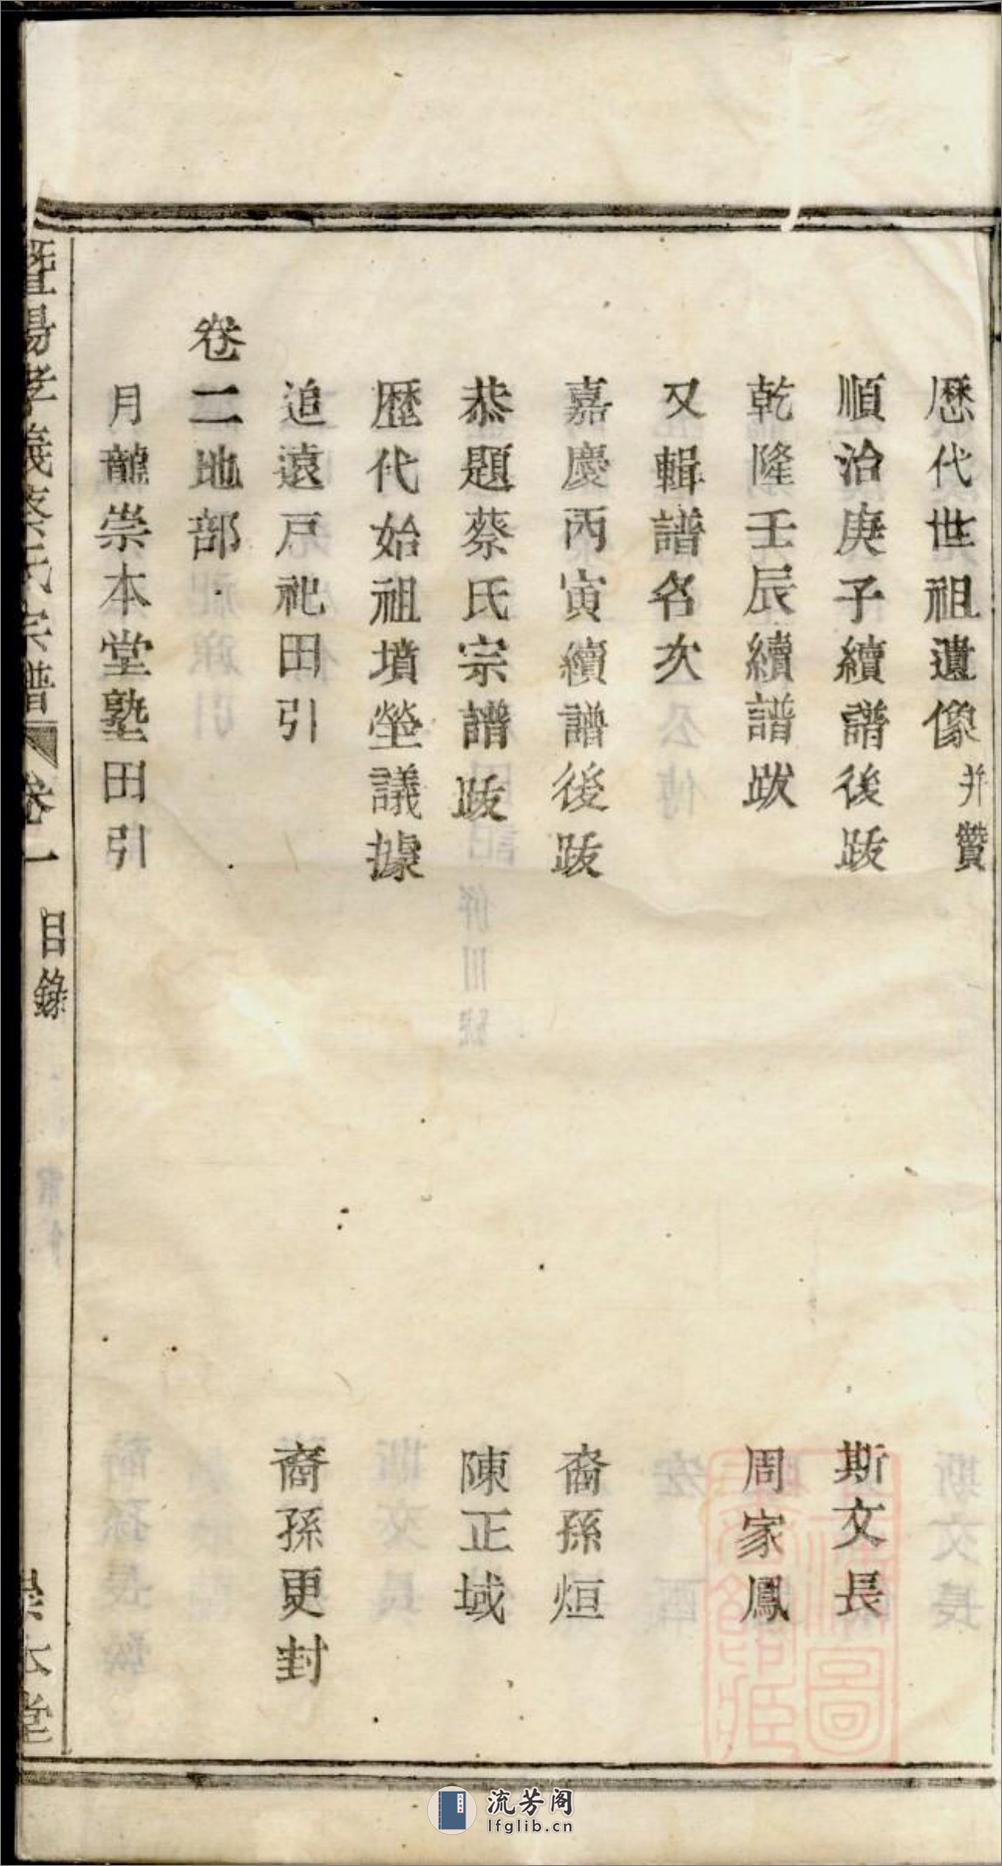 歷代世祖遺像并贊
順治庚子續譜後跋 斯文長
乾隆壬辰續譜跋 周家鳳
又輯譜名次
嘉慶丙寅續譜後跋 裔孫烜
恭題蔡氏宗譜跋 陳正域
歷代始祖墳塋議據
追遠戸祀田引 裔孫更封
卷二地部
月龍崇本堂塾田引
暨陽孝義蔡氏宗譜 卷一 目錄 崇本堂
流芳阁
lfglib.cn